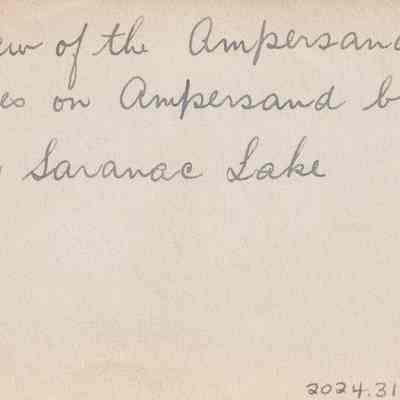 ew of the Ampersand
es on Ampersand b
Saranac Lake
2024.31